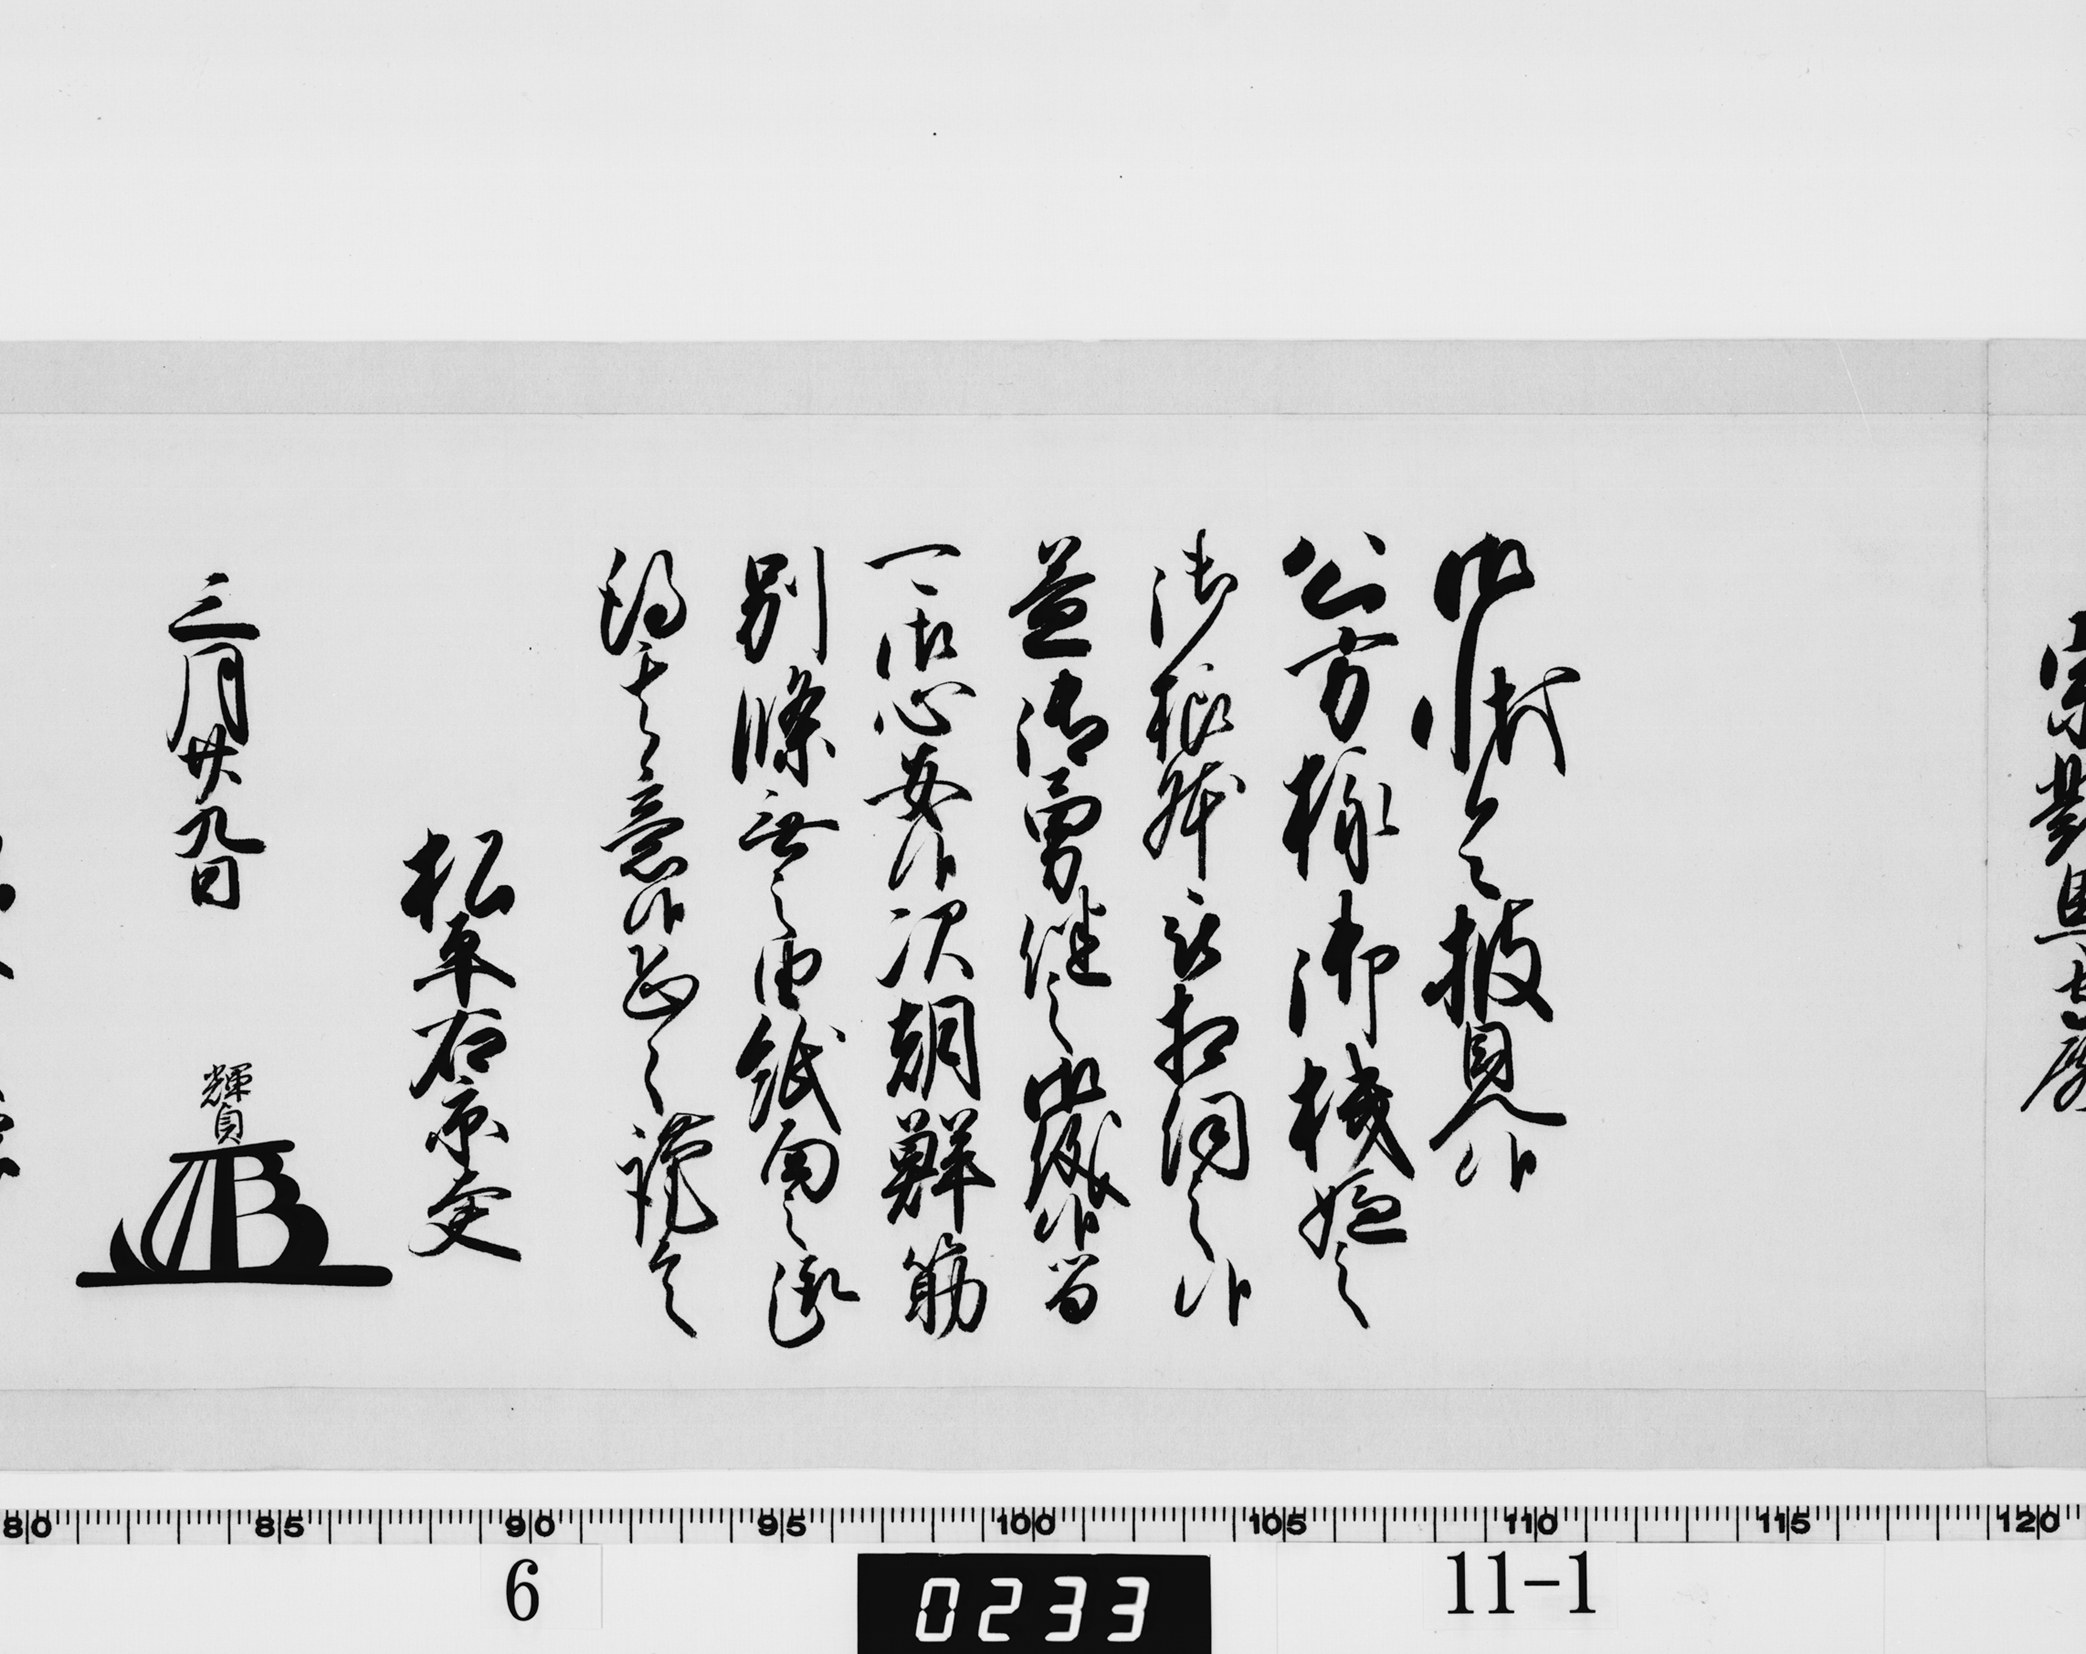 宗對馬守殿
御状令披見候
公方様御機嫌之
御様躰被相伺之候
益御勇健之御儀候間
可御心安候次朝鮮筋
別條無之由紙面之趣
得其意候恐々謹言
松平右京大夫
三月廿九日
輝貞
80 85 90 95 100 105 110 115 120
6
0233
11-1